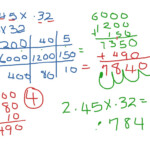 45 × .32
5 × 32
200 40 5
6000 1200 150
400 80 10
00
80
10
490
4
6000
1200
+ 150
7350
+ 490
7840
2.45 × .32 =
.784